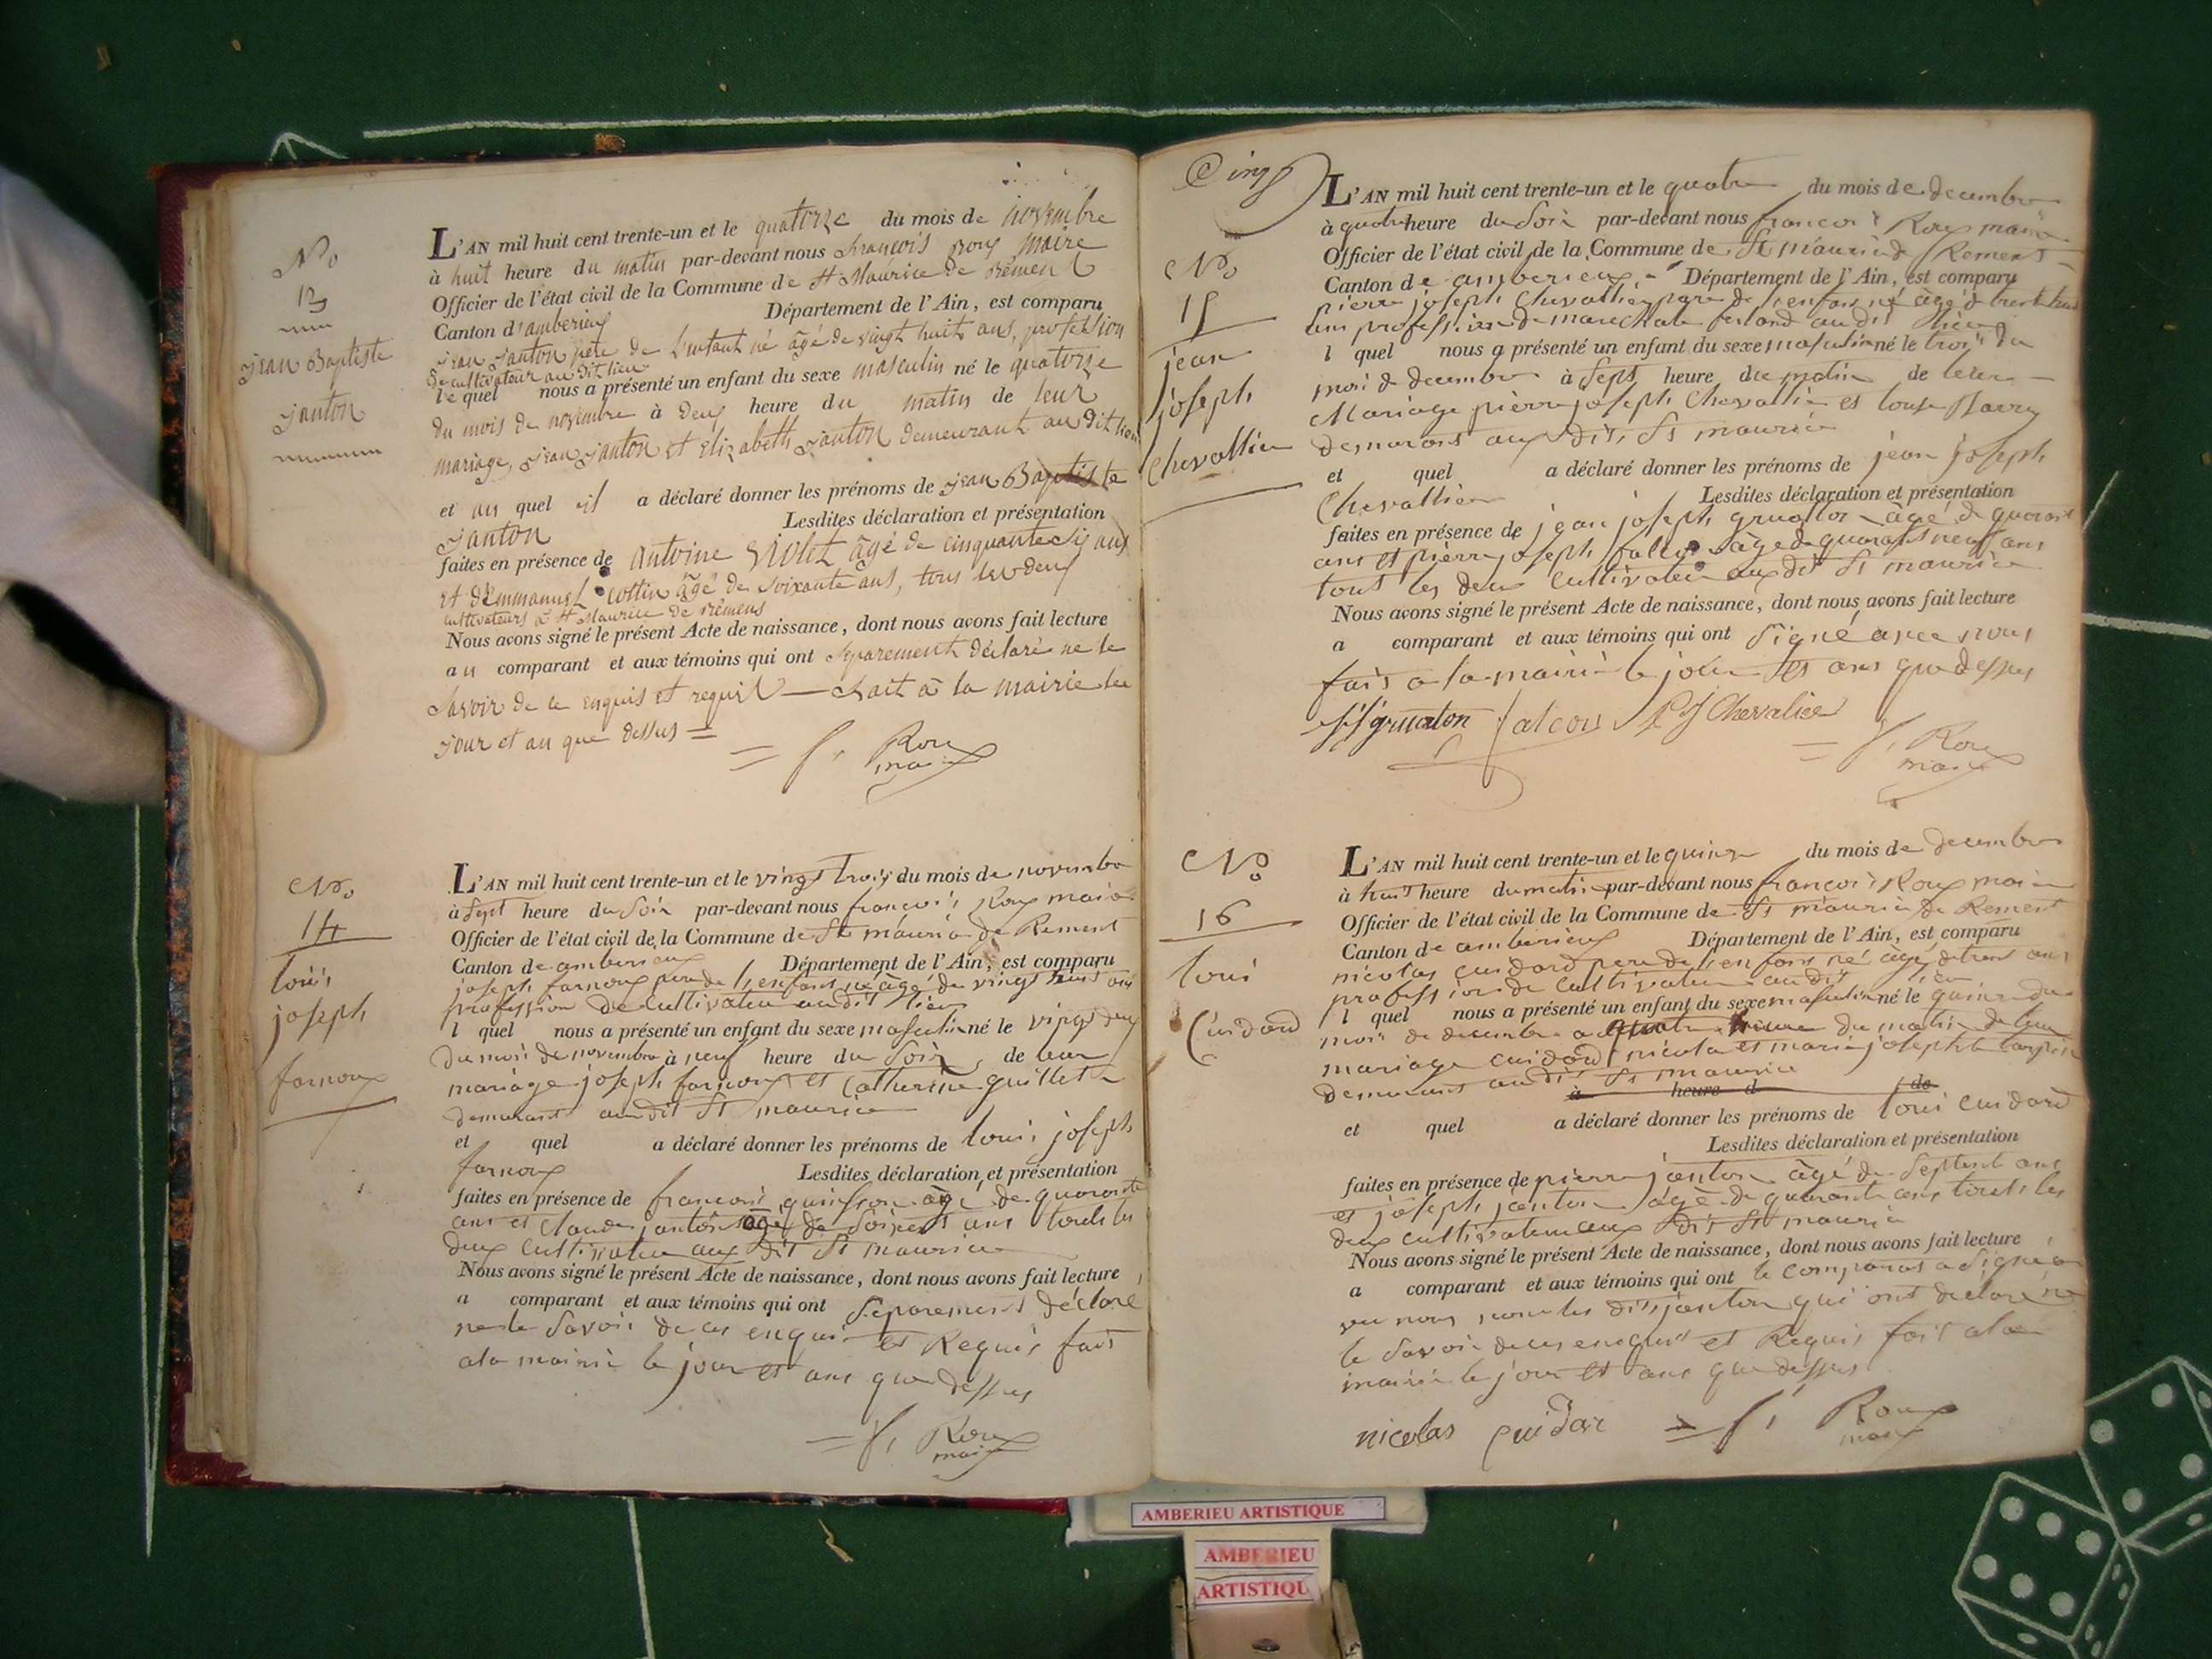 No
13
jean Baptiste
janton
L'AN mil huit cent trente-un et le quatorze du mois de novembre
à huit heure du matin par-devant nous francois Roux maire
Officier de l'état civil de la Commune de St Maurice de Rêment
Canton d'amberieux Département de l'Ain, est comparu
jean janton père de l'enfant né âgé de vingt huit ans, profession
de cultivateur au dit lieu
le quel nous a présenté un enfant du sexe masculin né le quatorze
du mois de novembre à deux heure du matin de leur
mariage, jean janton et Elizabeth janton demeurant au dit lieu
et au quel il a déclaré donner les prénoms de jean Baptiste
janton Lesdites déclaration et présentation
faites en présence de antoine violet âgé de cinquante six ans
et d'Emmanuel cottin âgé de soixante ans, tous les deux
cultivateurs à St Maurice de Rémens
Nous avons signé le présent Acte de naissance, dont nous avons fait lecture
au comparant et aux témoins qui ont séparement déclaré ne le
savoir de ce enquis et requis — fait à la mairie les
jour et an que dessus =
= f. Roux
maire
No
14
louis
joseph
farnoux
L'AN mil huit cent trente-un et le vingt trois du mois de novembre
à sept heure du soir par-devant nous francois Roux maire
Officier de l'état civil de la Commune de St maurice de Rement
Canton de amberieux Département de l'Ain, est comparu
joseph farnoux pere de l'enfant né âgé de vingt huit ans
profession de Cultivateu au dit lieu
l quel nous a présenté un enfant du sexe masculin né le vingt deux
du mois de novembre à neuf heure du soir de leur
mariage joseph farnoux et Catherine guillet
demurant au dit St maurice
et quel a déclaré donner les prénoms de louis joseph
farnoux Lesdites déclaration et présentation
faites en présence de francois quinsson âgé de quarante
ans et Claude janton âgé de soixent ans touts les
deux Cultivateu aux dit St maurice
Nous avons signé le présent Acte de naissance, dont nous avons fait lecture
a comparant et aux témoins qui ont séparement déclaré
ne le savoir de ces enquis et Requis fait
a la mairie le jour et ans que dessus
= f. Roux
maire
Cinq
No
15
jean
joseph
Chevallier
L'AN mil huit cent trente-un et le quatre du mois de decembre
à quatre heure du soir par-devant nous francois Roux maire
Officier de l'état civil de la Commune de St maurice de Rement
Canton de amberieux Département de l'Ain, est comparu
pierre joseph Chevallier pere de l'enfant né âgé de trente huit
ans profession de marechale ferland au dit lieu
l quel nous a présenté un enfant du sexe masculin né le trois du
mois de decembre à sept heure du matin de leur
Mariage pierre joseph Chevallier et louise Barry
demurant aux dit St maurice
et quel a déclaré donner les prénoms de jean joseph
Chevallier Lesdites déclaration et présentation
faites en présence de jean joseph gruatton âgé de quarant
ans et pierre joseph falcoz âgé de quarant neuf ans
tout les deux Cultivateu aux dit St maurice
Nous avons signé le présent Acte de naissance, dont nous avons fait lecture
a comparant et aux témoins qui ont signé avec nous
fait a la mairie le jour et ans que dessus
JJ gruaton falcoz P J Chevalier
= f. Roux
maire
No
16
loui
Cuidard
L'AN mil huit cent trente-un et le quinze du mois de decembre
à huit heure du matin par-devant nous francois Roux maire
Officier de l'état civil de la Commune de St maurice de Rement
Canton de amberieux Département de l'Ain, est comparu
nicolas cuidard pere de l'enfant né âgé de trent ans
profession de Cultivateu au dit lieu
l quel nous a présenté un enfant du sexe masculin né le quinze du
mois de decembre a quatre heure du matin de leur
mariage cuidard nicola et marie josephte
demurant au dit St maurice
à heure d de
et quel a déclaré donner les prénoms de loui cuidard
Lesdites déclaration et présentation
faites en présence de pierre janton âgé de septent ans
et joseph janton âgé de quarante ans touts les
deux cultivateu aux dit St maurice
Nous avons signé le présent Acte de naissance, dont nous avons fait lecture
a comparant et aux témoins qui ont le comparant a signé a
vec nous les dits janton qui ont declaré ne
le savoir de ces enquis et Requis fait a la
mairie le jour et ans que dessus
nicolas cuidar = f. Roux
maire
AMBERIEU ARTISTIQUE
AMBERIEU
ARTISTIQU